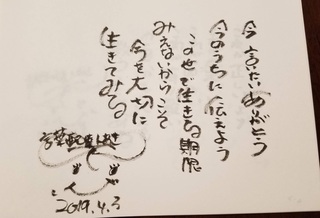 今 言いたい ありがとう
今のうちに 伝えよう
この世で生きる期限
みえないからこそ
今を大切に
生きてみる
2019.4.3